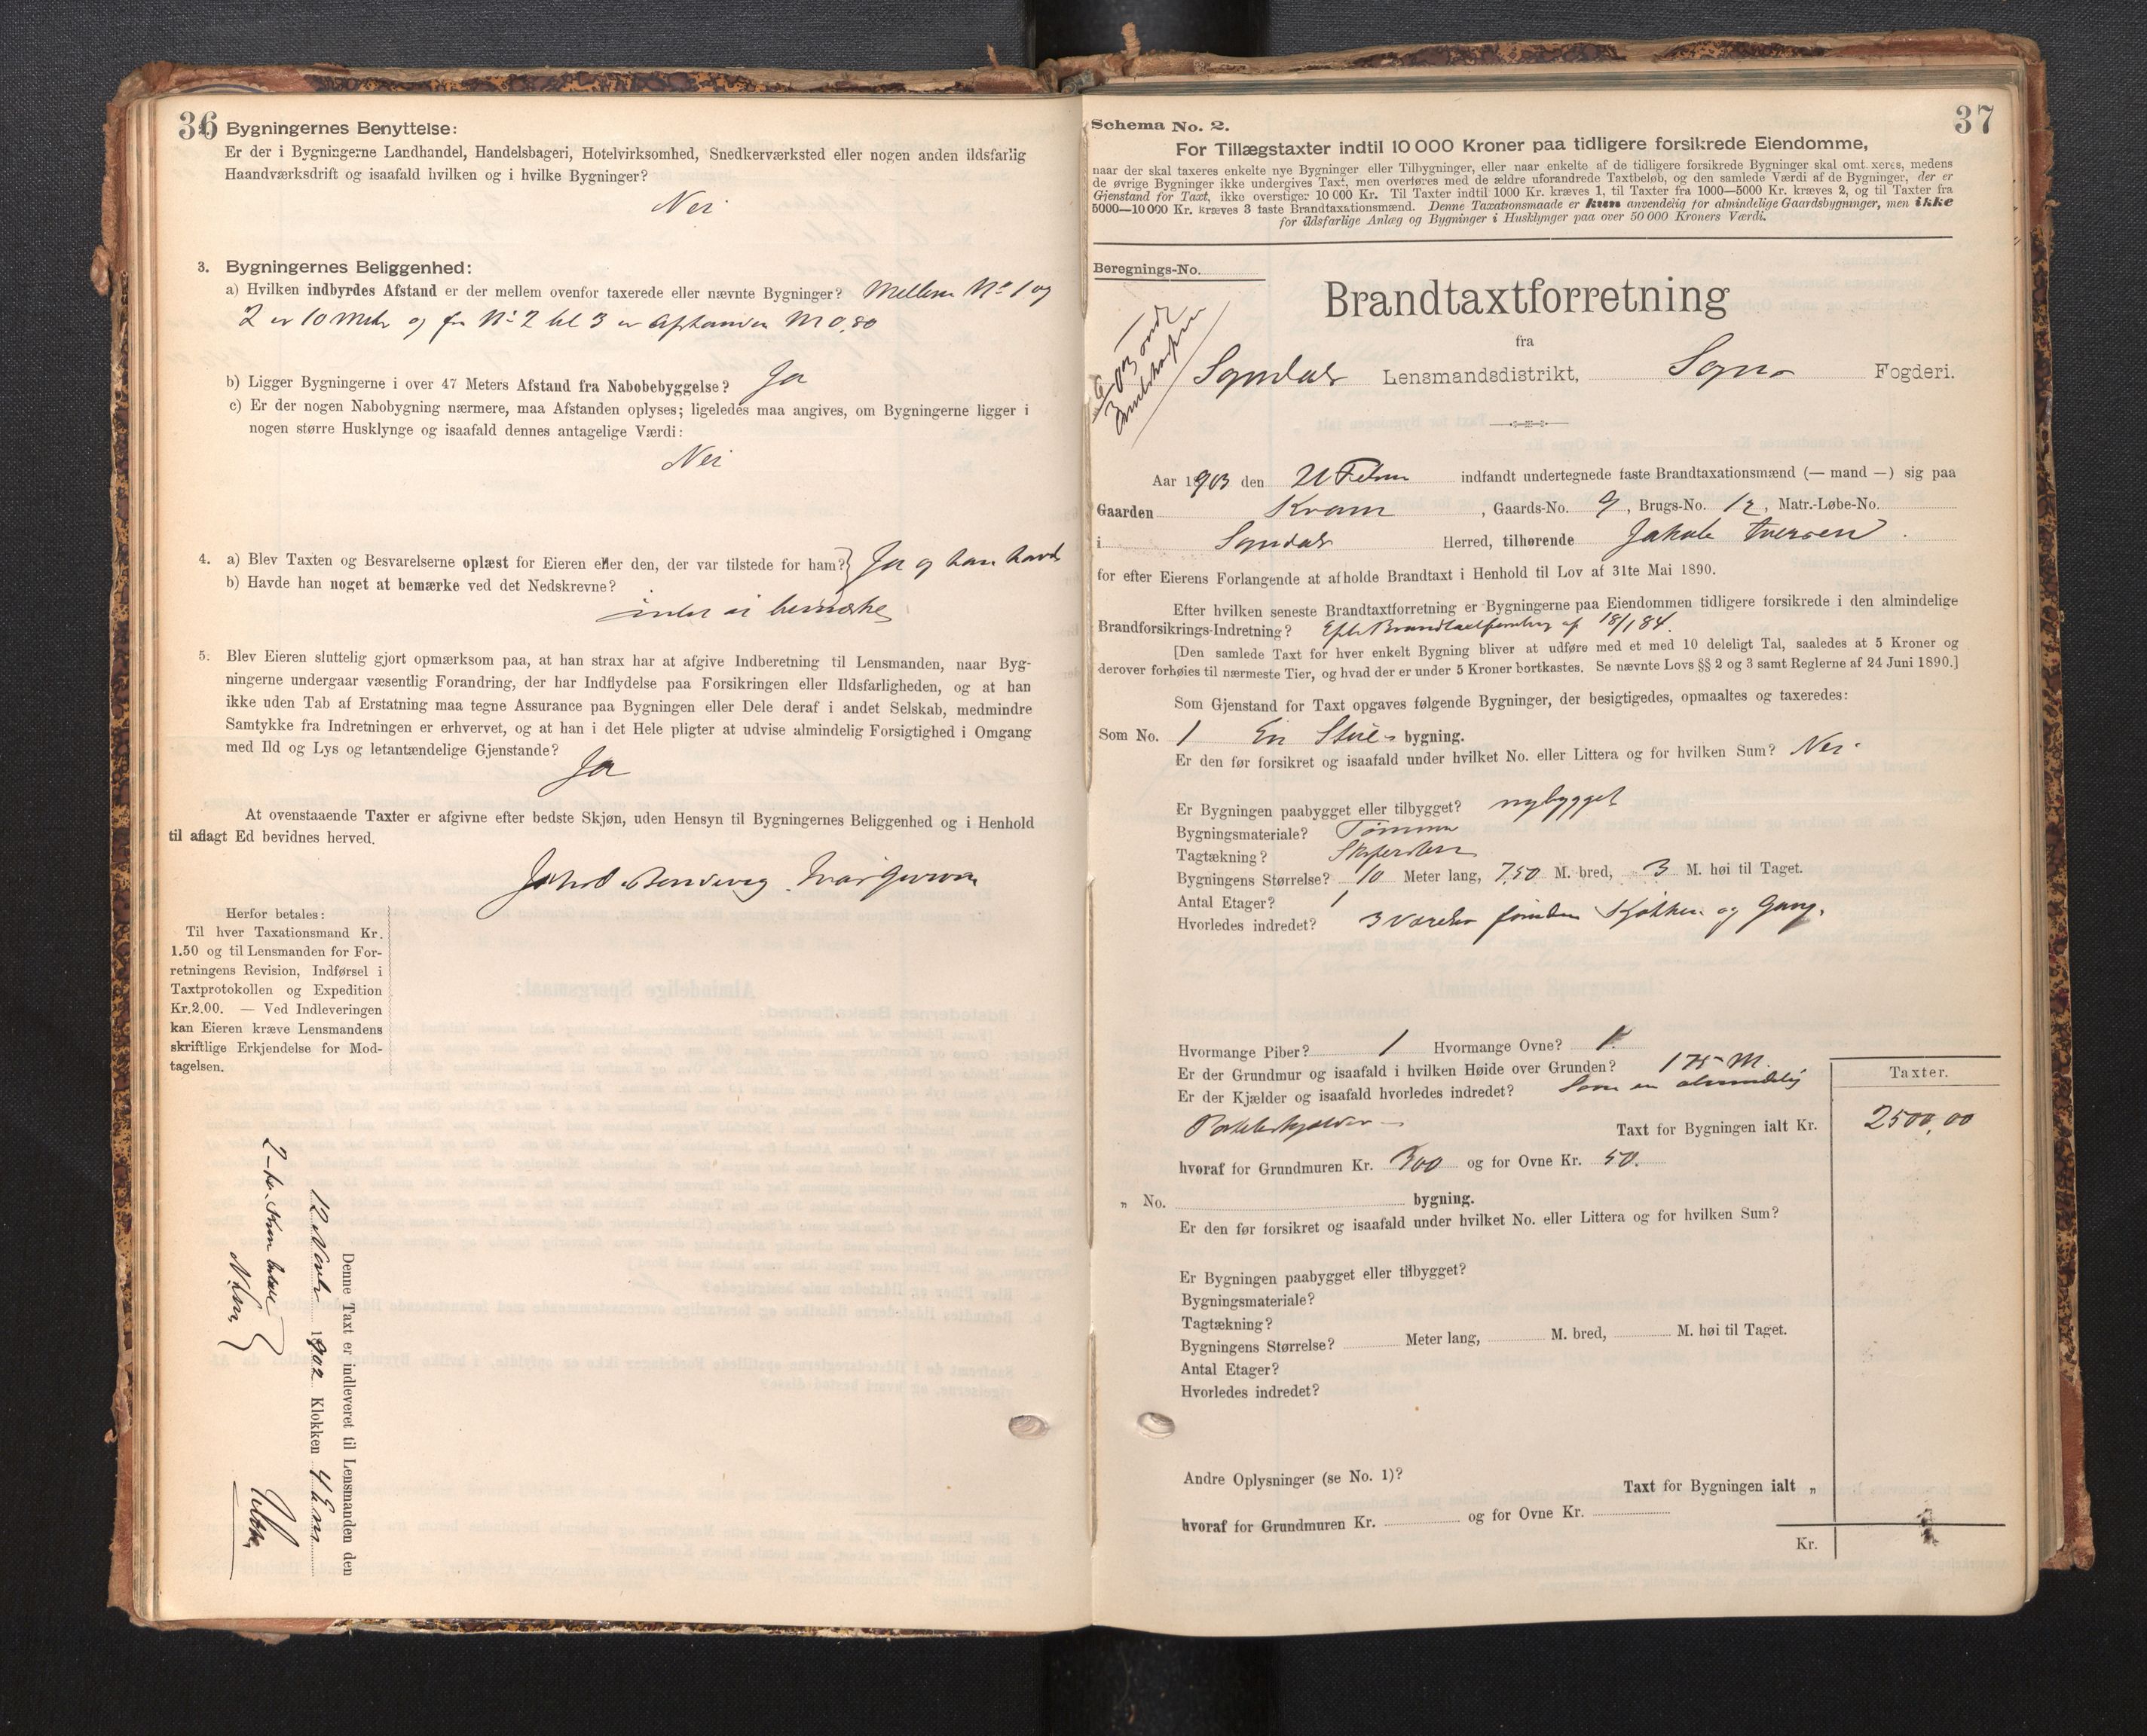 36
Bygningernes Benyttelse:
Er der i Bygningerne Landhandel, Handelsbageri, Hotelvirksomhed, Snedkerværksted eller nogen anden ildsfarlig
Haandværksdrift og isaafald hvilken og i hvilke Bygninger?
Nei
3. Bygningernes Beliggenhed:
a) Hvilken indbyrdes Afstand er der mellem ovenfor taxerede eller nævnte Bygninger? Mellem No 1 og
2 er 10 Meter og fra No 2 til 3 er Afstanden M 0,80
b) Ligger Bygningerne i over 47 Meters Afstand fra Nabobebyggelse? Ja
c) Er der nogen Nabobygning nærmere, maa Afstanden oplyses; ligeledes maa angives, om Bygningerne ligger i
nogen større Husklynge og isaafald dennes antagelige Værdi:
Nei
4. a) Blev Taxten og Besvarelserne oplæst for Eieren eller den, der var tilstede for ham? Ja og han havde
b) Havde han noget at bemærke ved det Nedskrevne?
intet at bemærke
5. Blev Eieren sluttelig gjort opmærksom paa, at han strax har at afgive Indberetning til Lensmanden, naar Byg-
ningerne undergaar væsentlig Forandring, der har Indflydelse paa Forsikringen eller Ildsfarligheden, og at han
ikke uden Tab af Erstatning maa tegne Assurance paa Bygningen eller Dele deraf i andet Selskab, medmindre
Samtykke fra Indretningen er erhvervet, og at han i det Hele pligter at udvise almindelig Forsigtighed i Omgang
med Ild og Lys og letantændelige Gjenstande?
Ja
At ovenstaaende Taxter er afgivne efter bedste Skjøn, uden Hensyn til Bygningernes Beliggenhed og i Henhold
til aflagt Ed bevidnes herved.
Herfor betales:
Til hver Taxationsmand Kr.
1.50 og til Lensmanden for For-
retningens Revision, Indførsel i
Taxtprotokollen og Expedition
Kr. 2.00. — Ved Indleveringen
kan Eieren kræve Lensmandens
skriftlige Erkjendelse for Mod-
tagelsen.
Denne Taxt er indleveret til Lensmanden den
12 Novbr 1902 Klokken 4 Em
37
Schema No. 2.
For Tillægstaxter indtil 10 000 Kroner paa tidligere forsikrede Eiendomme,
naar der skal taxeres enkelte nye Bygninger eller Tilbygninger, eller naar enkelte af de tidligere forsikrede Bygninger skal omtaxeres, medens
de øvrige Bygninger ikke undergives Taxt, men overføres med de ældre uforandrede Taxtbeløb, og den samlede Værdi af de Bygninger, der er
Gjenstand for Taxt, ikke overstiger 10 000 Kr. Til Taxter indtil 1000 Kr. kræves 1, til Taxter fra 1000—5000 Kr. kræves 2, og til Taxter fra
5000—10 000 Kr. kræves 3 faste Brandtaxationsmænd. Denne Taxationsmaade er kun anvendelig for almindelige Gaardsbygninger, men ikke
for ildsfarlige Anlæg og Bygninger i Husklynger paa over 50 000 Kroners Værdi.
Beregnings-No.
Brandtaxtforretning
fra
Sogndals Lensmandsdistrikt, Sogns Fogderi.
Aar 1903 den 21 Febr indfandt undertegnede faste Brandtaxationsmænd (— mand —) sig paa
Gaarden Kvam, Gaards-No. 9, Brugs-No. 12, Matr.-Løbe-No.
i Sogndals Herred, tilhørende Jakob Iversen.
for efter Eierens Forlangende at afholde Brandtaxt i Henhold til Lov af 31te Mai 1890.
Efter hvilken seneste Brandtaxtforretning er Bygningerne paa Eiendommen tidligere forsikrede i den almindelige
Brandforsikrings-Indretning? Efter Brandtaxtforretning af 18/1 84.
[Den samlede Taxt for hver enkelt Bygning bliver at udføre med et med 10 deleligt Tal, saaledes at 5 Kroner og
derover forhøies til nærmeste Tier, og hvad der er under 5 Kroner bortkastes. Se nævnte Lovs §§ 2 og 3 samt Reglerne af 24 Juni 1890.]
Som Gjenstand for Taxt opgaves følgende Bygninger, der besigtigedes, opmaaltes og taxeredes:
Som No. 1 En Stue- bygning.
Er den før forsikret og isaafald under hvilket No. eller Littera og for hvilken Sum? Nei
Er Bygningen paabygget eller tilbygget? nybygget
Bygningsmateriale? Tømmer
Tagtækning? Skifersten
Bygningens Størrelse? 10 Meter lang, 7,50 M. bred, 3 M. høi til Taget.
Antal Etager? 1
Hvorledes indredet? 3 Værelser foruden Kjøkken og Gang.
Hvormange Piber? 1 Hvormange Ovne? 1
Er der Grundmur og isaafald i hvilken Høide over Grunden? 175 M.
Er der Kjælder og isaafald hvorledes indredet? Som en almindelig
Potetkjælder Taxt for Bygningen ialt Kr.
Taxter.
2500,00
hvoraf for Grundmuren Kr. 300 og for Ovne Kr. 50.
„ No. bygning.
Er den før forsikret og isaafald under hvilket No. eller Littera og for hvilken Sum?
Er Bygningen paabygget eller tilbygget?
Bygningsmateriale?
Tagtækning?
Bygningens Størrelse? Meter lang, M. bred, M. høi til Taget.
Antal Etager?
Hvorledes indredet?
Andre Oplysninger (se No. 1)?
Taxt for Bygningen ialt „
hvoraf for Grundmuren Kr. og for Ovne Kr.
Kr.